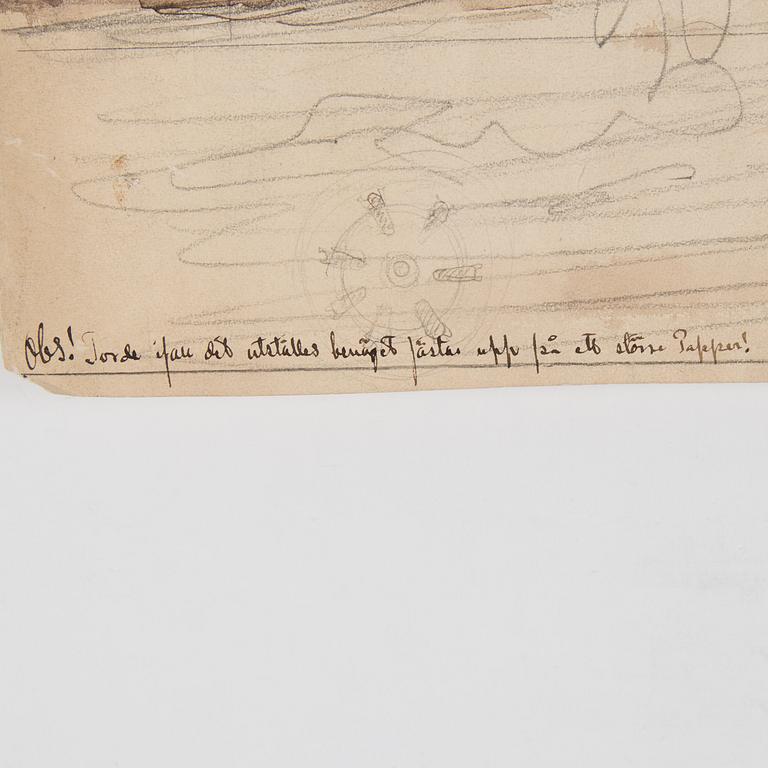 Obs! Torde ifall det utställes benäget fästas upp på ett större Papper!